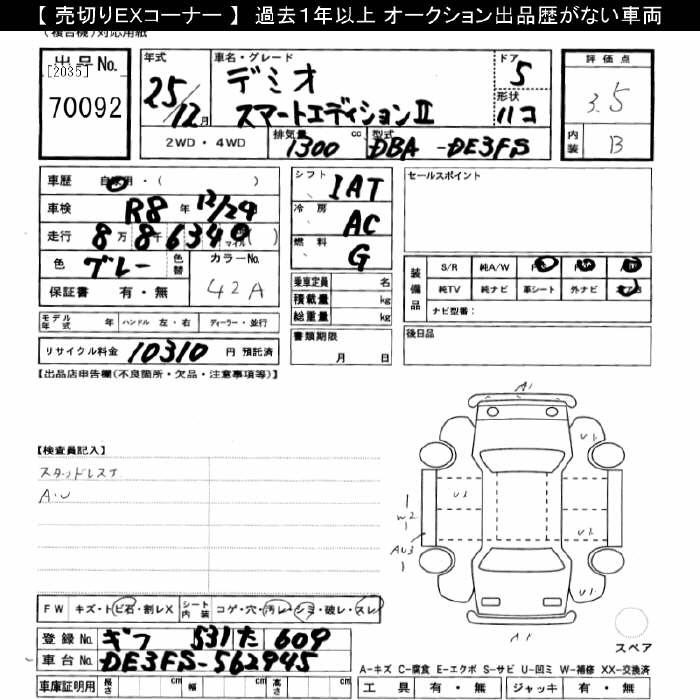 【 売切りEXコーナー 】 過去１年以上 オークション出品歴がない車両
(複合機)対応用紙
出品No.
[2035]
70092
年式
25/12月
車名・グレード
デミオ
スマートエディションⅡ
ドア
5
形状
ハコ
評価点
3.5
内装
B
2WD・4WD
排気量
1300 cc
型式
DBA-DE3FS
車歴 自家用・( )
車検 R8年 12/29
走行 8万86340 マイル( )
色 グレー 色替
カラーNo.
42A
保証書 有・無
シフト IAT
冷房 AC
燃料 G
乗車定員 名
積載量 kg
総重量 kg
セールスポイント
装備品
S/R 純A/W
純TV 純ナビ 革シート 外ナビ
ナビ型番：
モデル年式 年 ハンドル 左・右 ディーラー・並行
リサイクル料金 10310 円 預託済
書類期限
月 日
後日品
【出品店申告欄(不良箇所・欠品・注意事項等)】
【検査員記入】
スタッドレス
A・U
A1
U1
U3
W2
AU3
U2
A1
FW キズ・トビ石・割レX シート内装 コゲ・穴・汚レ・シミ・破レ・スレ
登録No. ギフ 531た 609
車台No. DE3FS-562945
スペア
A-キズ C-腐食 E-エクボ S-サビ U-凹ミ W-補修 XX-交換済
車庫証明用 長さ cm 幅 cm 高さ cm
工具 有・無 ジャッキ 有・無